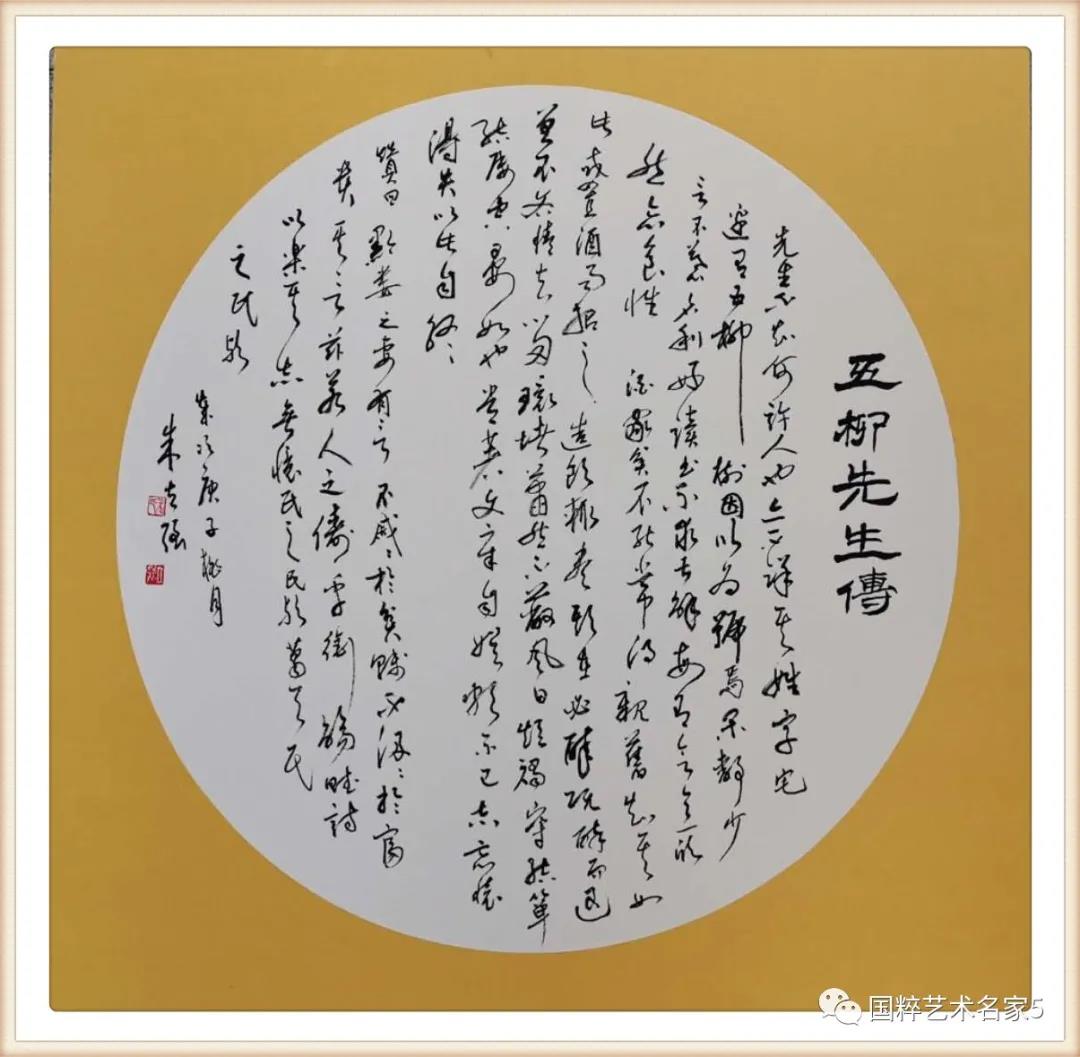 五柳先生傳
先生不知何許人也亦不詳其姓字宅
邊有五柳樹因以为號焉閑靜少
言不慕名利好讀书不求甚解每有会意欣
然忘食性酒家貧不能常得親舊知其如
此或置酒而招之造飲輒盡期在必醉既醉而退
曾不吝情去留環堵蕭然不蔽風日短褐穿結簞
瓢屢空晏如也常著文章自娛頗示己志忘懷
得失以此自終
贊曰黔婁之妻有言不戚戚於貧賤不汲汲於富
貴其言茲若人之儔乎銜觴賦詩
以樂其志無懷氏之民歟葛天氏
之民歟
歲次庚子桃月
朱志强
国粹艺术名家5